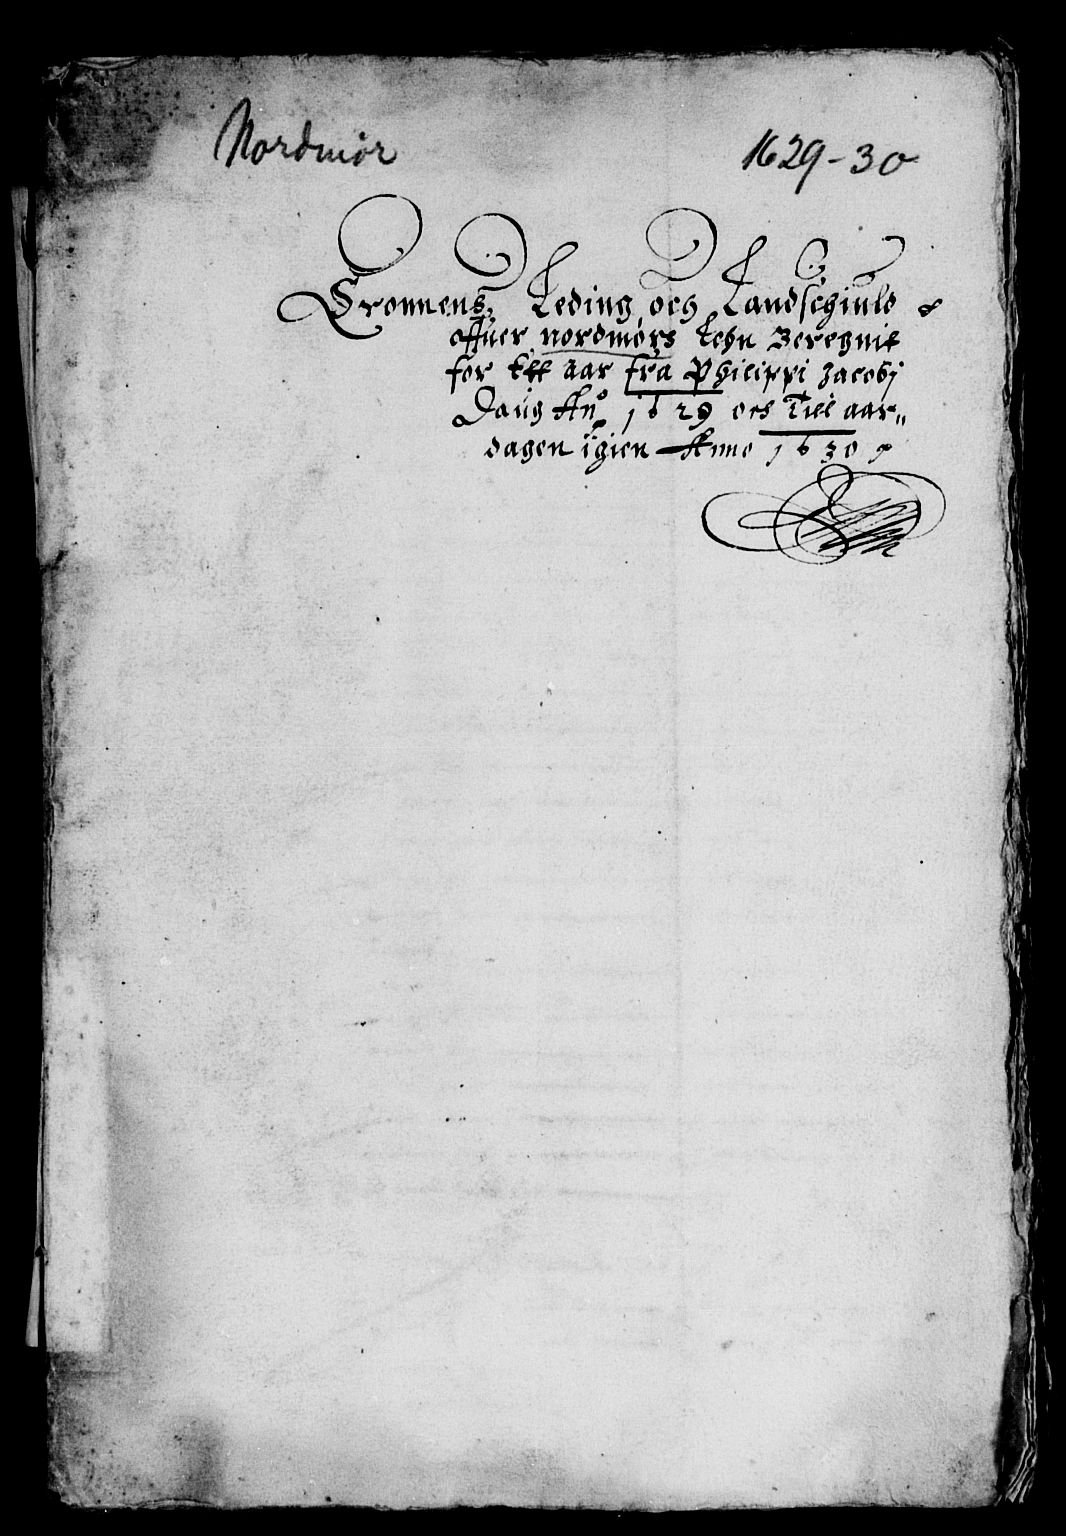 Nordmør 1629-30
Cronnens, Leding och Landschiuld
offuer nordmørs Lehn Beregnit
for Ett aar fra Philippi Jacobj
Daug Anº 1629 och Till aar„
dagen igien Anno 1630